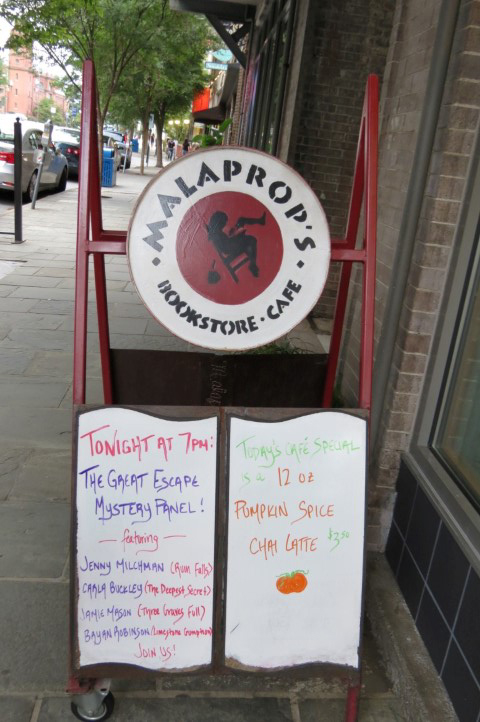 MALAPROP'S
BOOKSTORE · CAFE
TONIGHT AT 7PM:
THE GREAT ESCAPE
MYSTERY PANEL!
— featuring —
JENNY MILCHMAN (Ruin Falls)
CARLA BUCKLEY (The Deepest Secret)
JAMIE MASON (Three Graves Full)
BRYAN ROBINSON (Limestone Gumption)
JOIN US!
TODAY'S CAFÉ SPECIAL
is a 12 OZ
PUMPKIN SPICE
CHAI LATTE $3.50